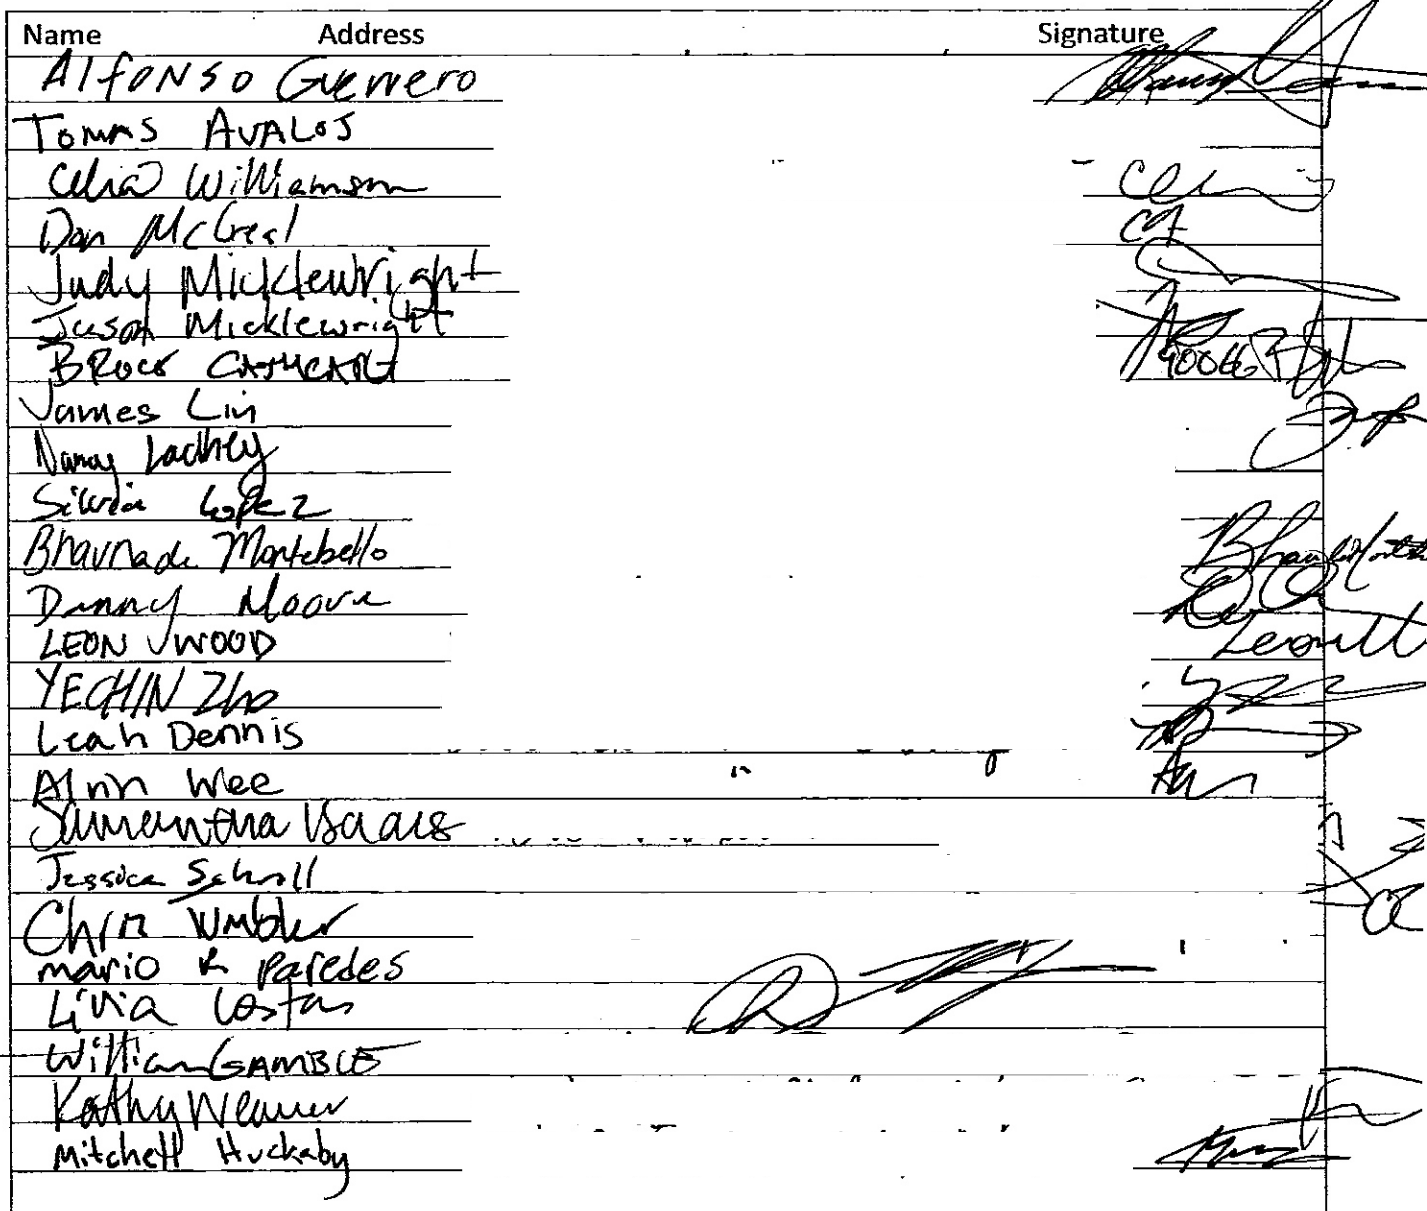 Name Address Signature
Alfonso Guerrero
Tomas Avalos
Celia Williamson
Dan McGreal
Judy Micklewright
Jason Micklewright
Brock Cathcart 90066
James Lin
Nancy Lachley
Silvia Lopez
Bhavna de Montebello
Danny Moore
LEON J WOOD
YECHIN Zho
Leah Dennis
Alnn Wee
Samantha Isaacs
Jessica Schroll
Chris
mario R Paredes
Livia Costas
William GAMBLE
Kathy Weaver
Mitchell Huckaby